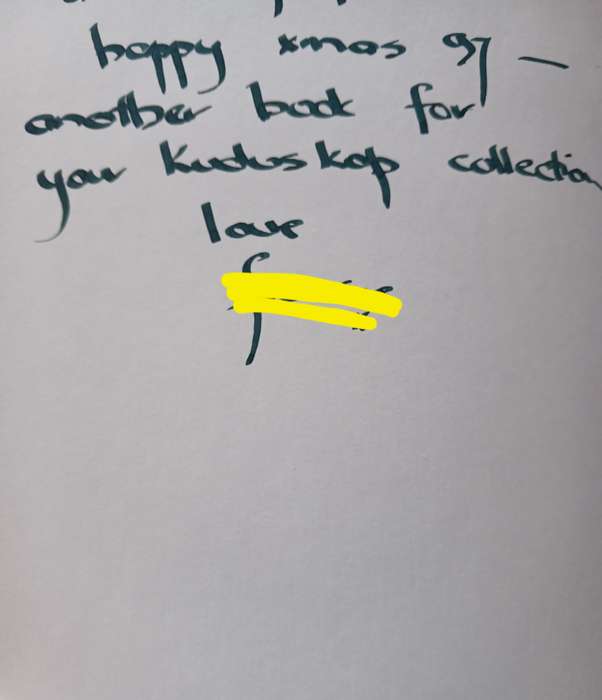 happy xmas 97 —
another book for
your Kuduskop collection
love